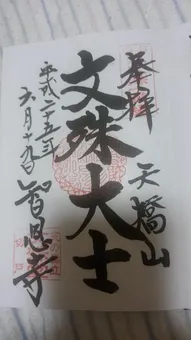 奉拝
天橋山
文殊大士
平成二十五年
六月十九日
智恩寺